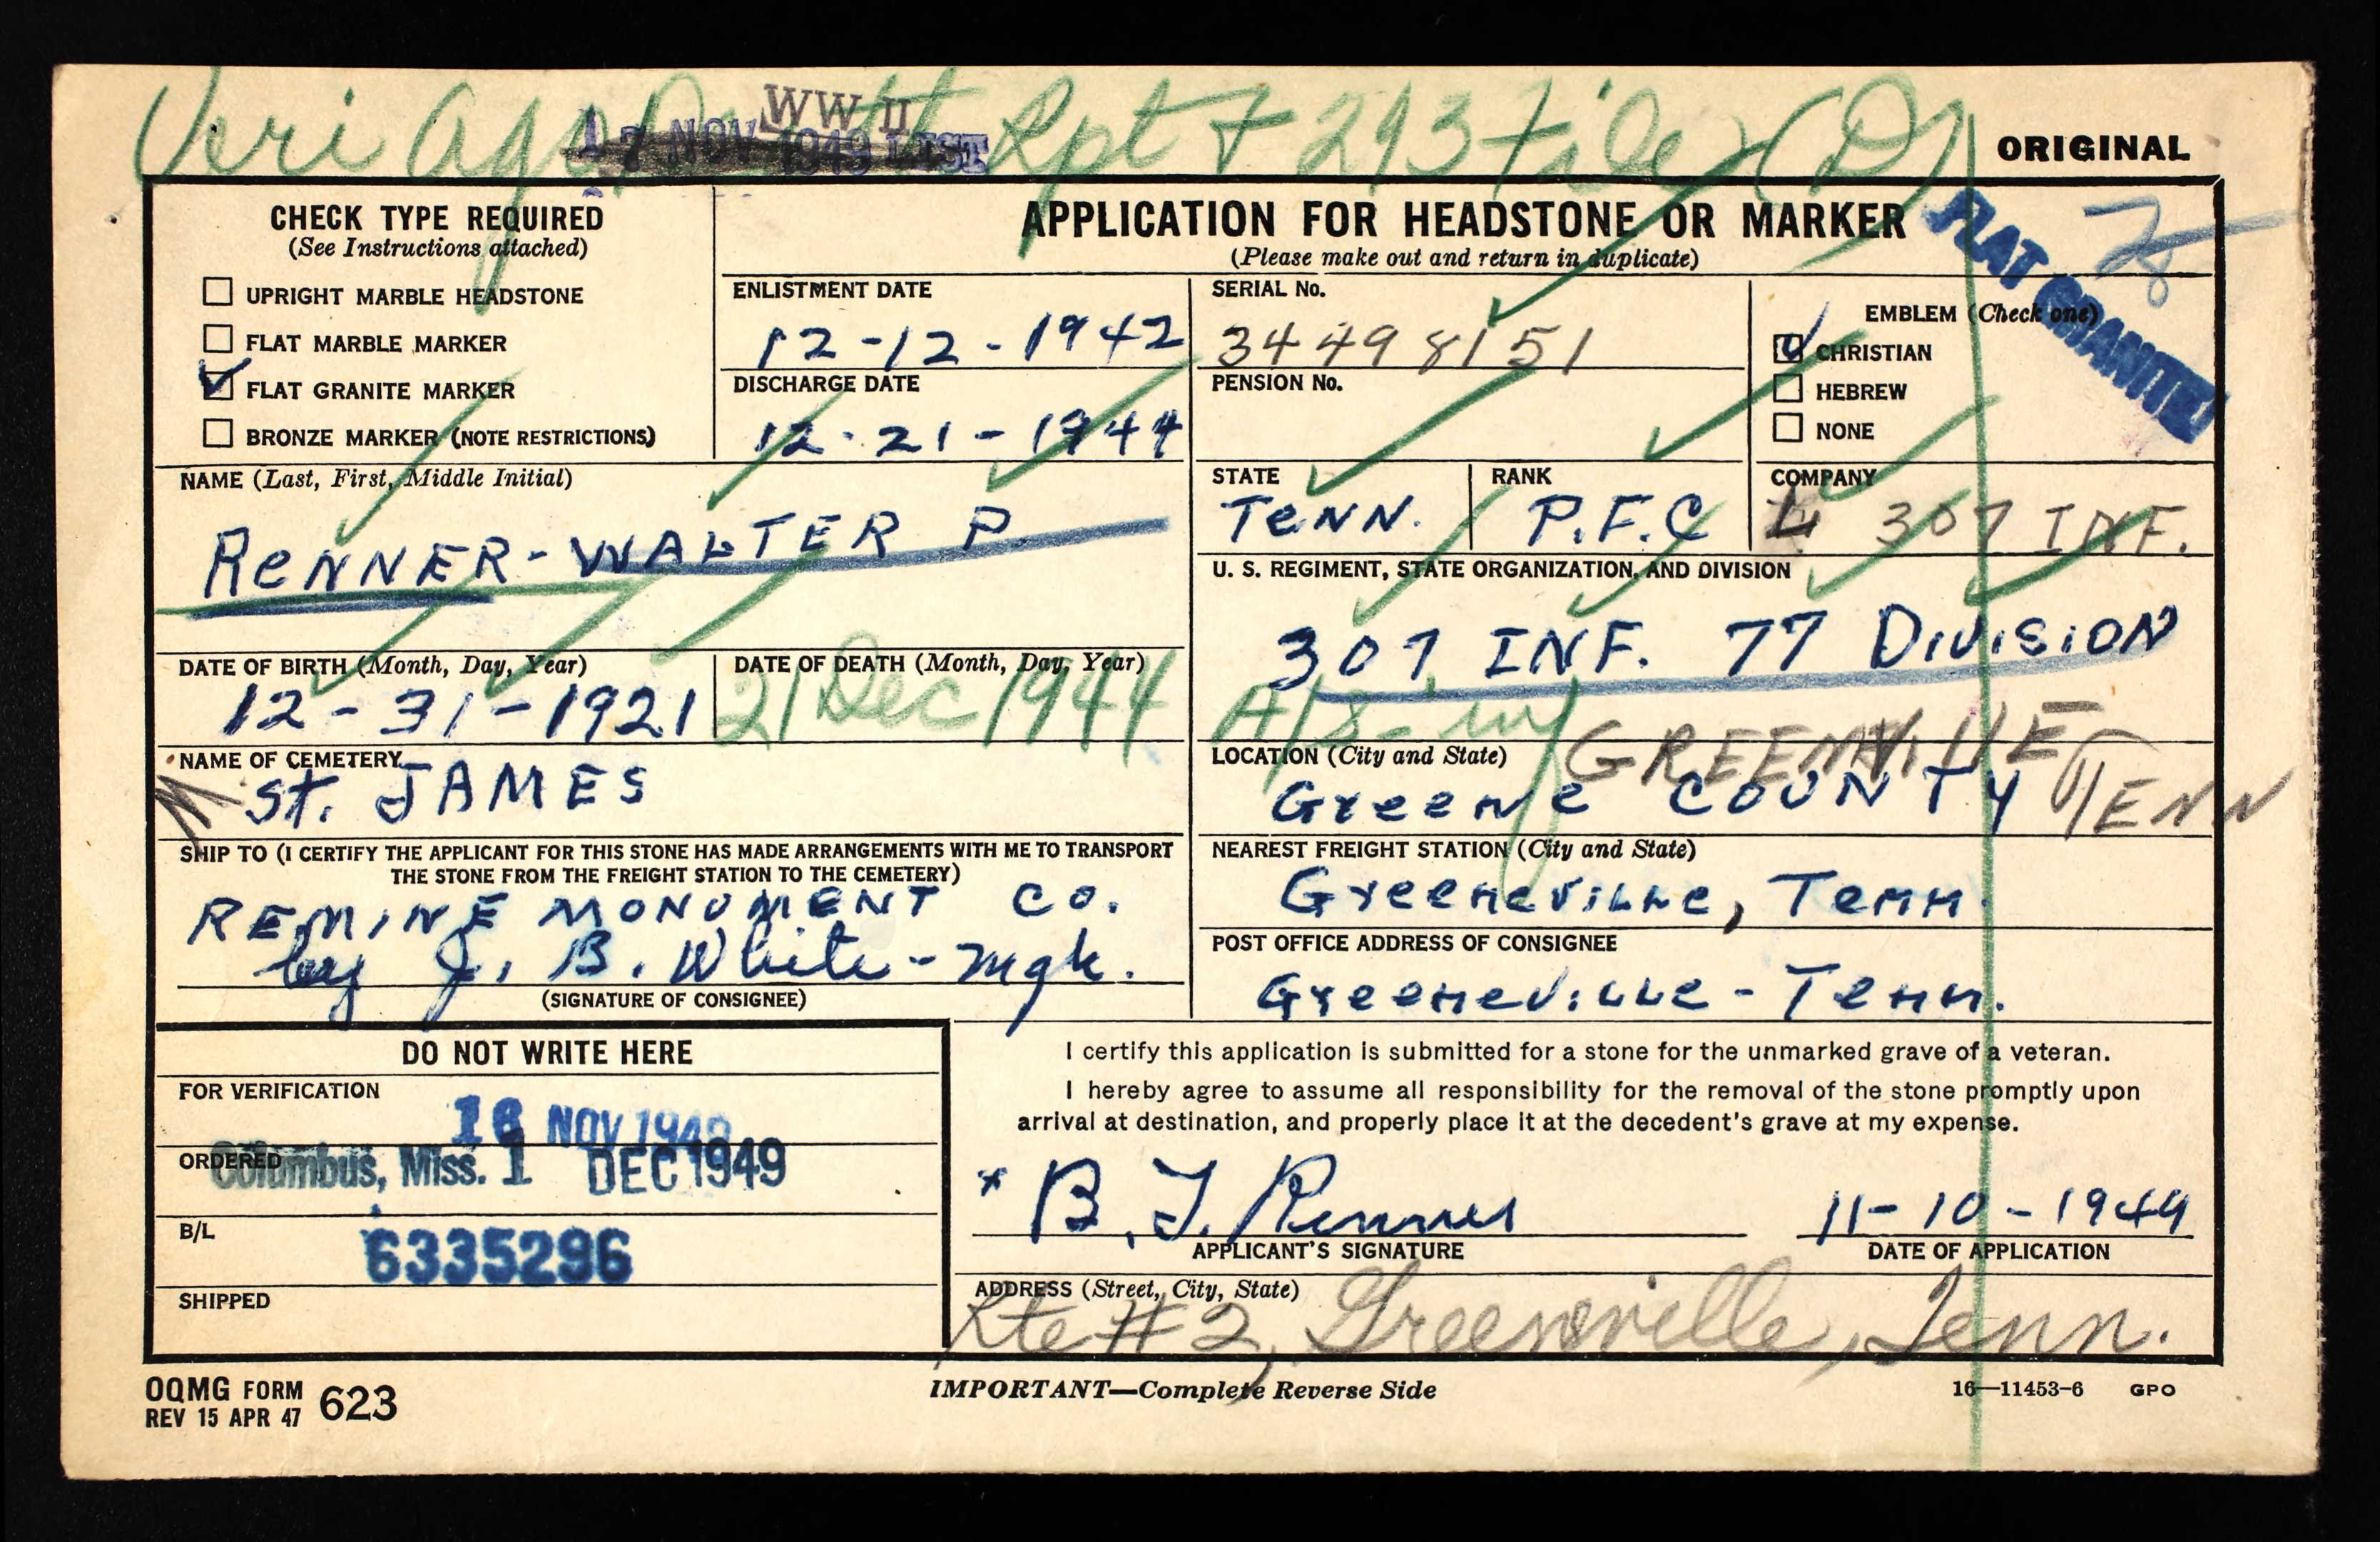 Veri Agst Rpt + 293 File (D)
WW II
17 NOV 1949 LIST
ORIGINAL
CHECK TYPE REQUIRED
(See Instructions attached)
UPRIGHT MARBLE HEADSTONE
FLAT MARBLE MARKER
FLAT GRANITE MARKER
BRONZE MARKER (NOTE RESTRICTIONS)
APPLICATION FOR HEADSTONE OR MARKER
(Please make out and return in duplicate)
FLAT GRANITE
ENLISTMENT DATE
12-12-1942
DISCHARGE DATE
12-21-1944
SERIAL No.
34498151
PENSION No.
EMBLEM (Check one)
CHRISTIAN
HEBREW
NONE
NAME (Last, First, Middle Initial)
RENNER-WALTER P.
STATE
TENN.
RANK
P.F.C
COMPANY
L 307 INF.
U. S. REGIMENT, STATE ORGANIZATION, AND DIVISION
307 INF. 77 DIVISION
DATE OF BIRTH (Month, Day, Year)
12-31-1921
DATE OF DEATH (Month, Day, Year)
21 Dec 1944
NAME OF CEMETERY
St. JAMES
LOCATION (City and State)
GREENVILLE TENN
Greene COUNTY
SHIP TO (I CERTIFY THE APPLICANT FOR THIS STONE HAS MADE ARRANGEMENTS WITH ME TO TRANSPORT
THE STONE FROM THE FREIGHT STATION TO THE CEMETERY)
REMINE MONUMENT CO.
by J. B. White - mgr.
(SIGNATURE OF CONSIGNEE)
NEAREST FREIGHT STATION (City and State)
Greeneville, Tenn.
POST OFFICE ADDRESS OF CONSIGNEE
Greeneville - Tenn.
DO NOT WRITE HERE
FOR VERIFICATION
16 NOV 1949
ORDERED
Columbus, Miss. 1 DEC 1949
B/L
6335296
SHIPPED
I certify this application is submitted for a stone for the unmarked grave of a veteran.
I hereby agree to assume all responsibility for the removal of the stone promptly upon
arrival at destination, and properly place it at the decedent's grave at my expense.
* B. F. Renner
11-10-1949
APPLICANT'S SIGNATURE
DATE OF APPLICATION
ADDRESS (Street, City, State)
Rte #2, Greenville, Tenn.
OQMG FORM 623
REV 15 APR 47
IMPORTANT—Complete Reverse Side
16—11453-6 GPO